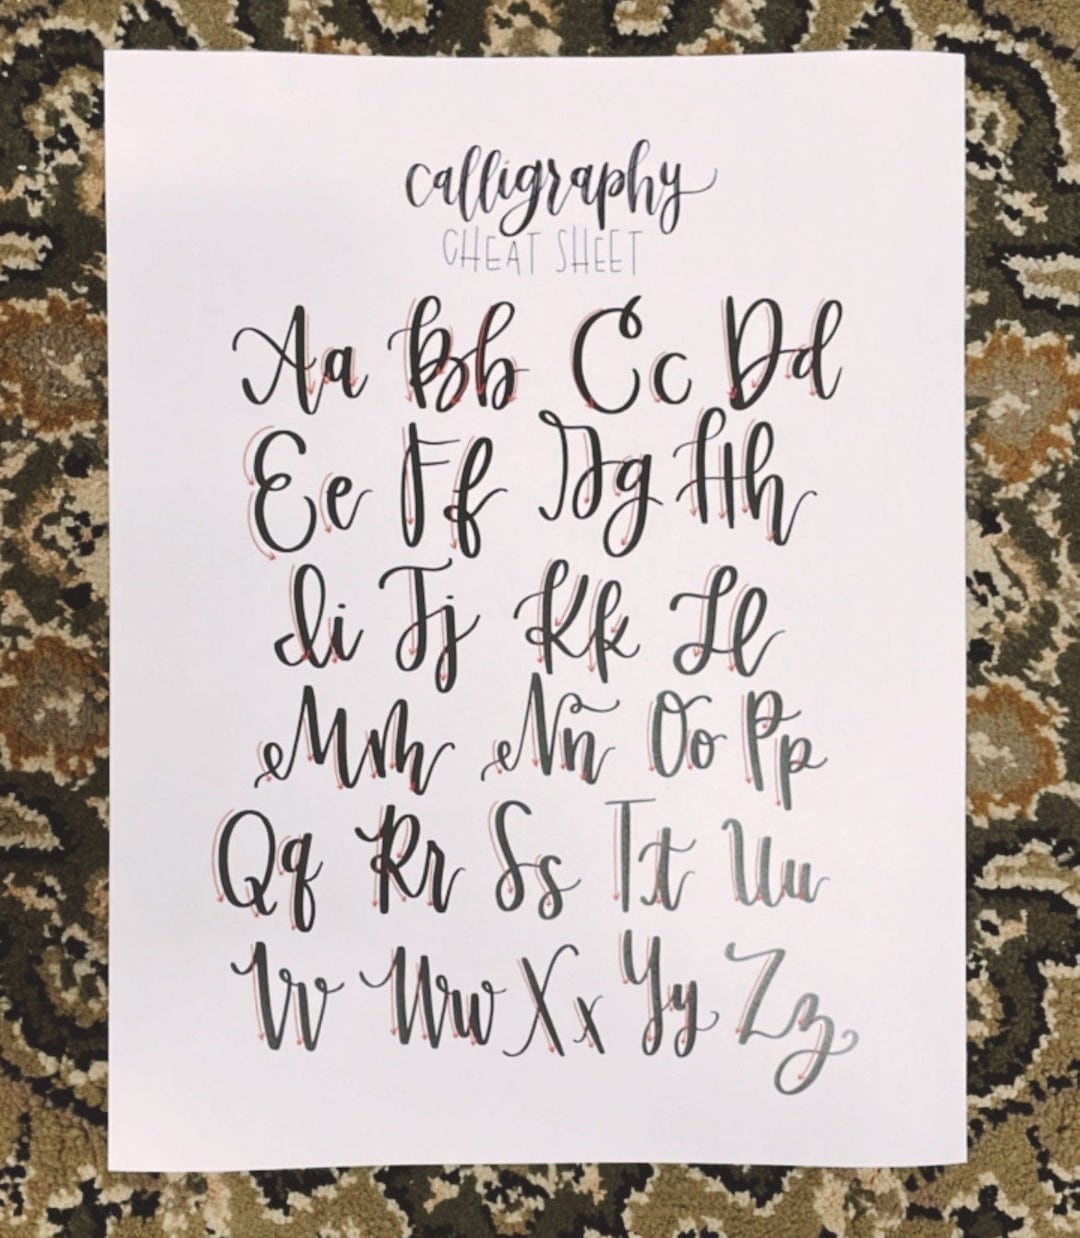 calligraphy
CHEAT SHEET
Aa Bb Cc Dd
Ee Ff Gg Hh
Ii Jj Kk Ll
Mm Nñ Oo Pp
Qq Rr Ss Tt Uu
Vv Ww Xx Yy Zz